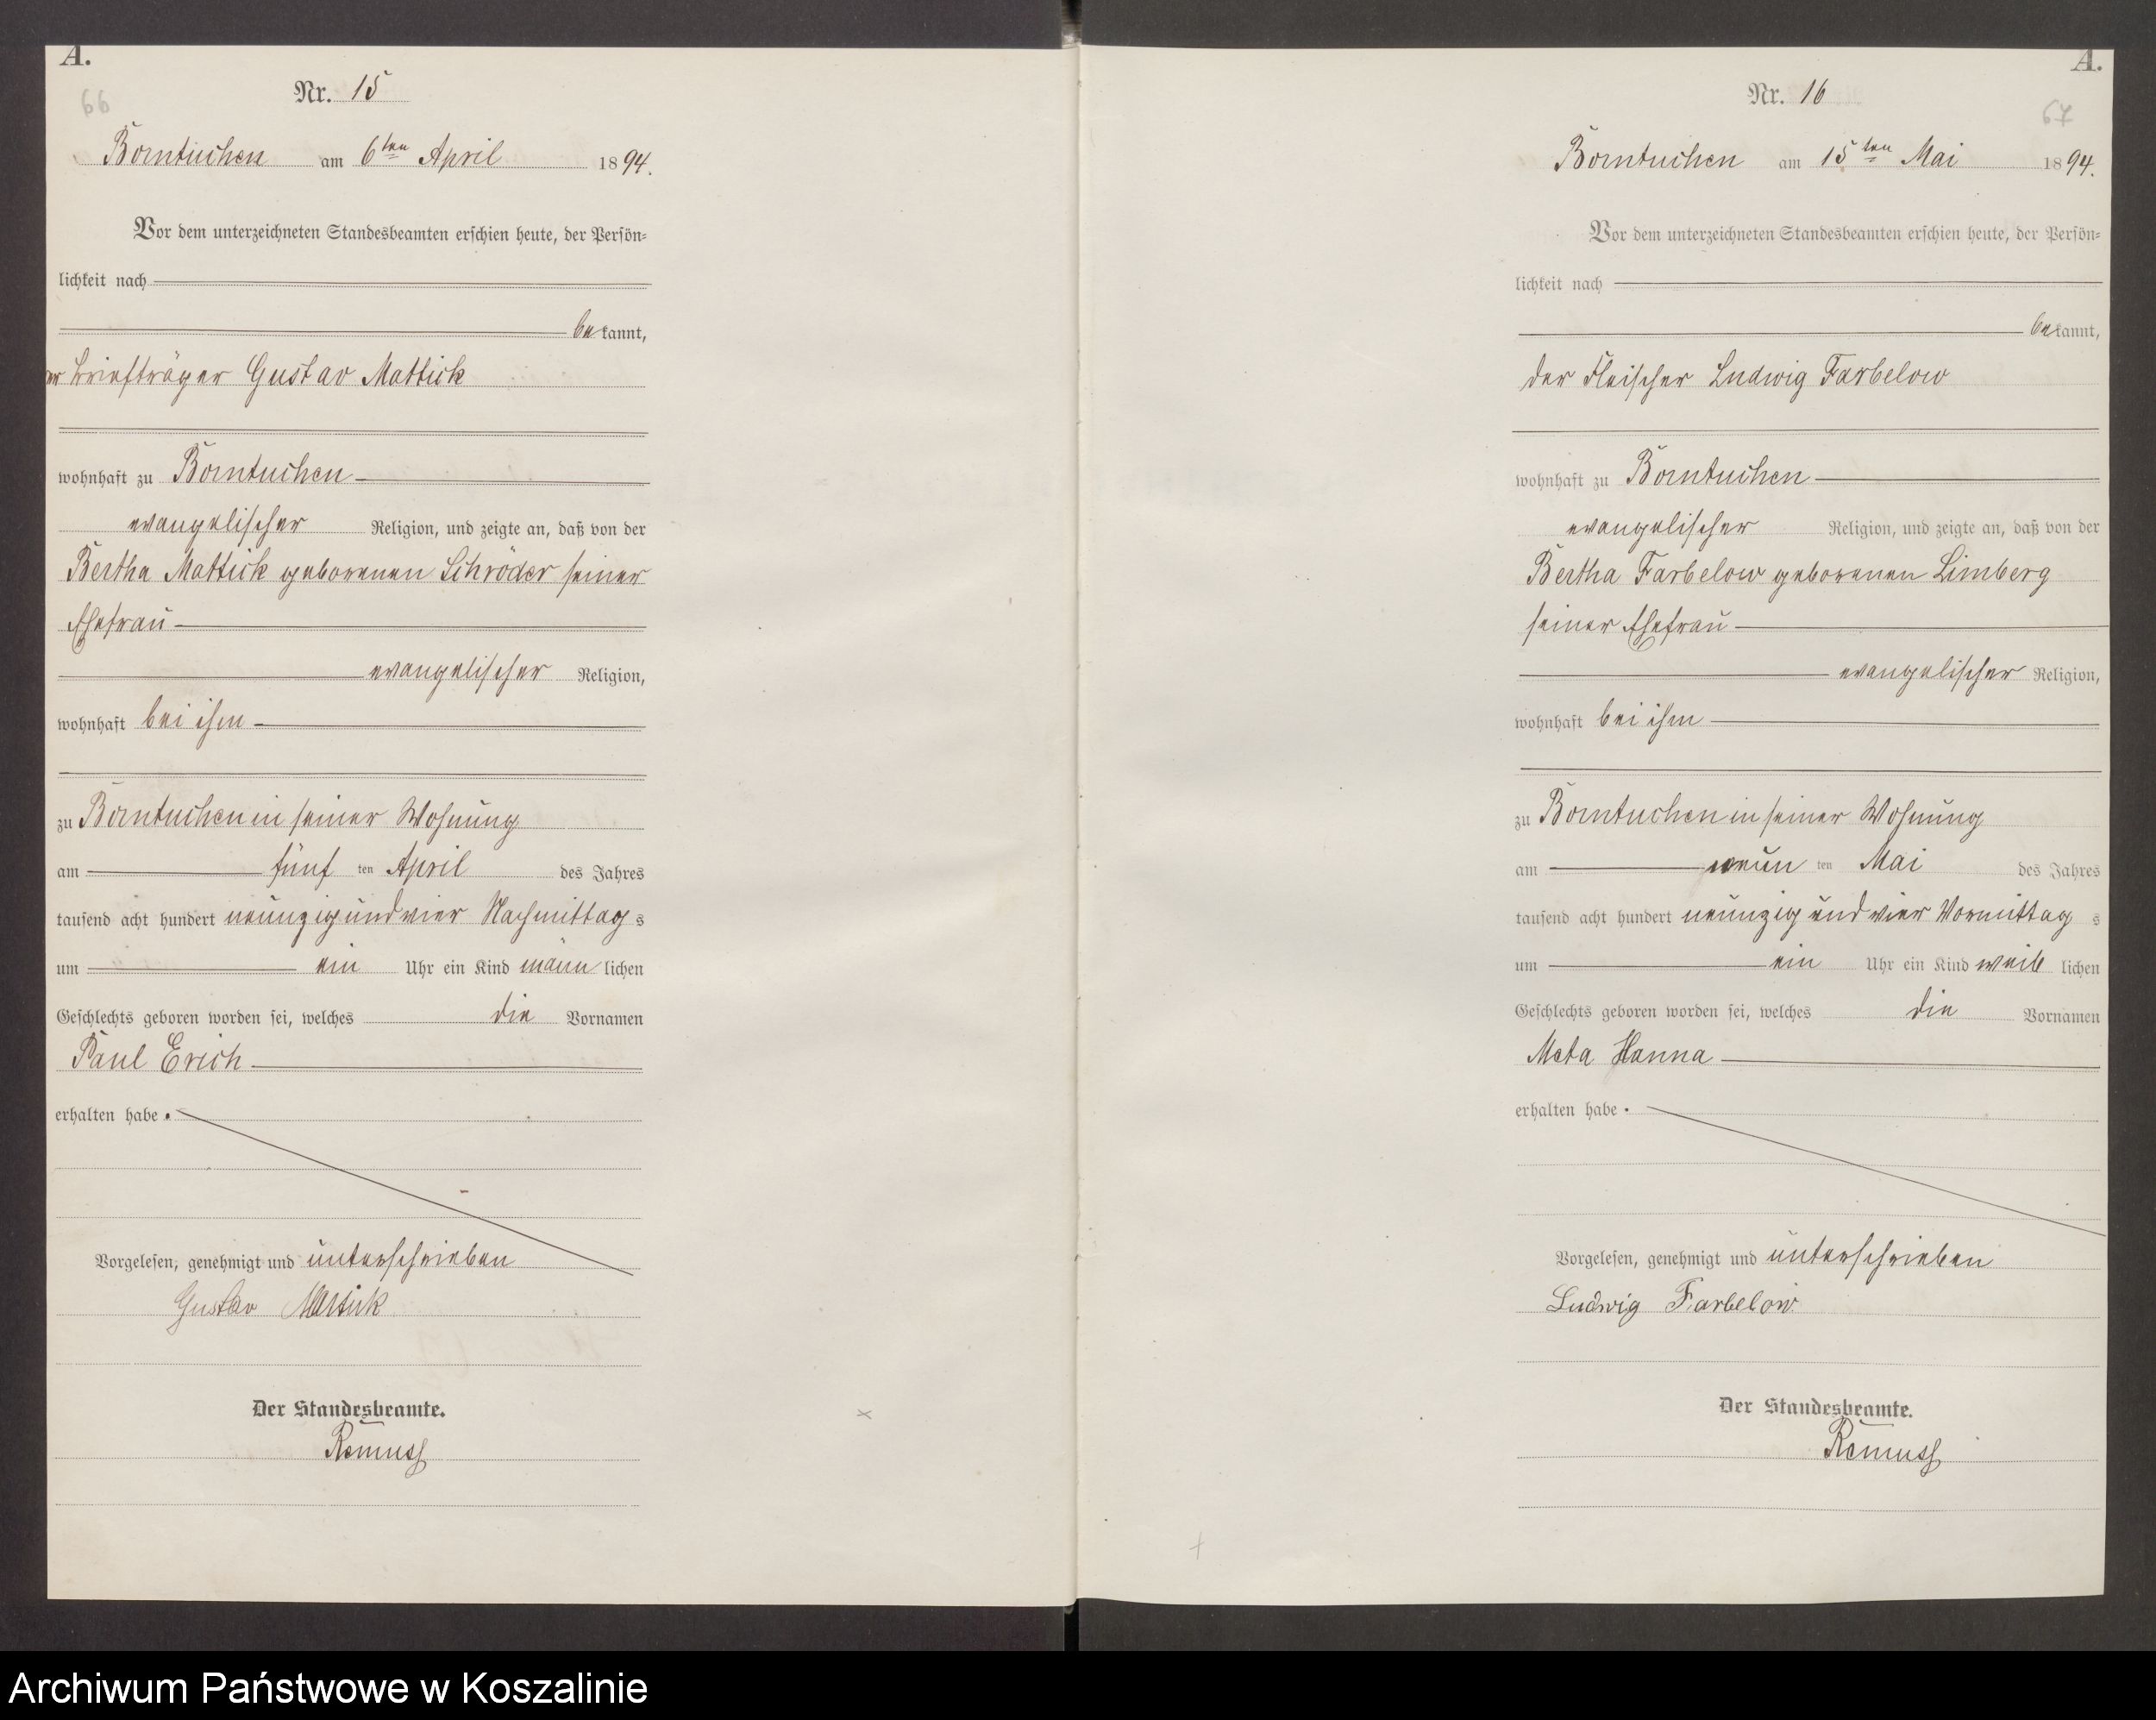 A.
66
Nr. 15
Borntuchen am 6ten April 1894.
Vor dem unterzeichneten Standesbeamten erschien heute, der Persön-
lichkeit nach
bekannt,
er Briefträger Gustav Mattick
wohnhaft zu Borntuchen
evangelischer Religion, und zeigte an, daß von der
Bertha Mattick geborenen Schröder seiner
Ehefrau
evangelischer Religion,
wohnhaft bei ihm
zu Borntuchen in seiner Wohnung
am fünf ten April des Jahres
tausend acht hundert neunzig und vier Nachmittag s
um ein Uhr ein Kind männ lichen
Geschlechts geboren worden sei, welches die Vornamen
Paul Erich
erhalten habe.
Vorgelesen, genehmigt und unterschrieben
Gustav Mattick
Der Standesbeamte.
Remuss
A.
67
Nr. 16
Borntuchen am 15ten Mai 1894.
Vor dem unterzeichneten Standesbeamten erschien heute, der Persön-
lichkeit nach
bekannt,
der Fleischer Ludwig Farbelow
wohnhaft zu Borntuchen
evangelischer Religion, und zeigte an, daß von der
Bertha Farbelow geborenen Limberg
seiner Ehefrau
evangelischer Religion,
wohnhaft bei ihm
zu Borntuchen in seiner Wohnung
am neun ten Mai des Jahres
tausend acht hundert neunzig und vier Vormittag s
um ein Uhr ein Kind weib lichen
Geschlechts geboren worden sei, welches die Vornamen
Meta Hanna
erhalten habe.
Vorgelesen, genehmigt und unterschrieben
Ludwig Farbelow
Der Standesbeamte.
Remuss
Archiwum Państwowe w Koszalinie